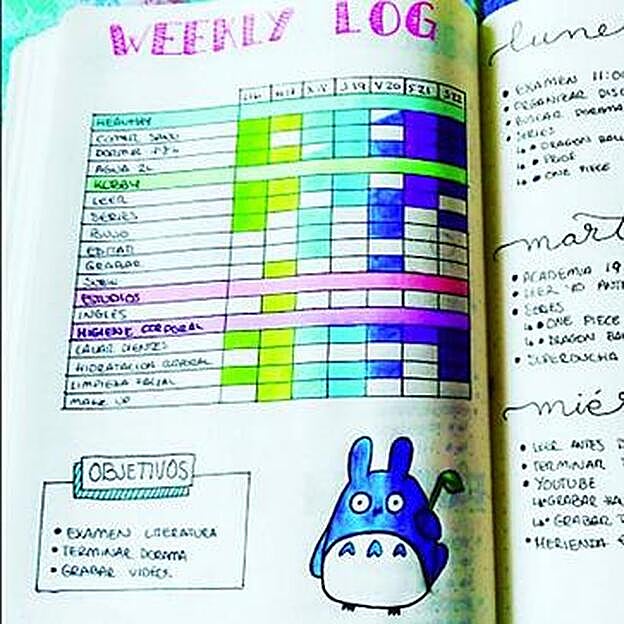 WEEKLY LOG
L16 M17 X18 J19 V20 S21 D22
HEALTHY
COMER SANO
DORMIR
AGUA 2L
HOBBY
LEER
SERIES
DIBUJO
EDITAR
GRABAR
SUBIR
ESTUDIOS
INGLES
HIGIENE CORPORAL
LAVAR DIENTES
HIDRATACION CORPORAL
LIMPIEZA FACIAL
MAKE UP
OBJETIVOS
• EXAMEN LITERATURA
• TERMINAR DORAMA
• GRABAR VIDEOS.
lune
• EXAMEN 11:00
• ORGANIZAR DISC
• BUSCAR DORAMA
• SERIES
↳• DRAGON BALL
↳•
↳• ONE PIECE
mart
• ACADEMIA 19
• LEER 40 ANTE
• SERIES
↳• ONE PIECE
↳• DRAGON BA
•
miér
• LEER ANTES D
• TERMINAR
• YOUTUBE
↳• GRABAR
↳• GRABAR
• MERIENDA